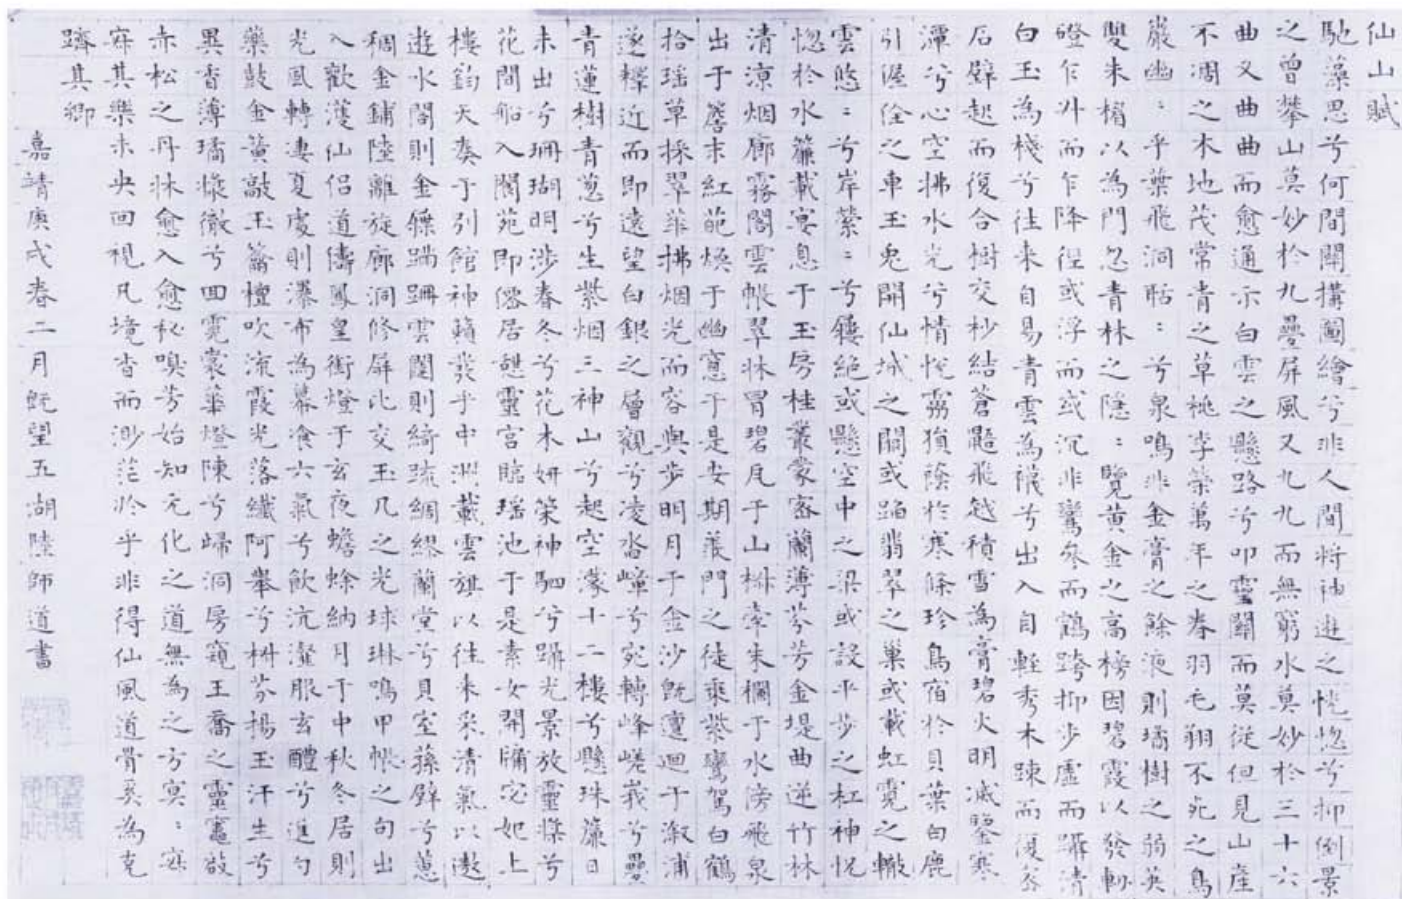 仙山賦
馳藻思兮何間闡搆圖繪兮非人間將神遊之恍惚兮抑倒景
之曾攀山莫妙於九疊屏風又九九而無窮水莫妙於三十六
曲又曲曲而愈通示白雲之懸路兮叩靈關而莫從但見山產
不凋之木地茂常青之草桃李榮萬年之春羽毛翔不死之鳥
巖幽:乎葉飛洞聒:兮泉鳴非金膏之餘液則璚樹之弱英
雙朱楣以為門忽青林之隱:覽黃金之高榜因碧霞以發軔
磴乍升而乍降徑或浮而或沉非鸞參而鶴跨抑步虛而躡清
白玉為棧兮往來自易青雲為隥兮出入自輕秀木踈而復合
石壁起而復合樹交杪結蒼鼯飛越積雪為膏碧火明滅鑒寒
潭兮心空拂水光兮情悅霧猿蔭於寒條珍鳥宿於貝葉白鹿
引偓佺之車玉兔開仙域之關或蹈翡翠之巢或載虹霓之轍
雲悠:兮岸縈:兮鏤絕或懸空中之梁或設平步之杠神怳
惚於水簾載宴息于玉房桂叢蒙密蘭薄芬芳金堤曲逆竹林
清涼烟廊霧閣雲帳翠牀冒碧瓦于山椒牽朱欄于水傍飛泉
出于簷末紅葩煥于幽窻于是安期羨門之徒乘紫鸞駕白鶴
拾瑶草採翠華拂烟光而容與步明月于金沙既邅迴于溆浦
遂轇近而即遠望白銀之層觀兮凌沓嶂兮宛轉峰嵯峩兮疊
青蓮樹青蔥兮生紫烟三神山兮起空濛十二樓兮懸珠簾日
未出兮珊瑚明涉春冬兮花木妍榮神駟兮躡光景放靈檥兮
花間船入閬苑即僊居憩靈宮臨瑶池于是素女開牖宓妃上
樓鈞天奏于別館神籟發乎中洲載雲旗以往來采清氣以遨
遊水閣則金鑠蹣跚雲闥則綺疏綢繆蘭堂兮貝室蓀壁兮蕙
稠金鋪陸離旋廊洞修屏比交玉几之光球琳鳴甲帳之句出
入歡濩仙侶道儔鳳皇銜燈于玄夜蟾蜍納月于中秋冬居則
光風轉凄夏處則瀑布為幕飡六氣兮飲沆瀣服玄醴兮進勺
藥鼓金簧敲玉籥檀吹流霞光落纖阿舉兮枡芬揚玉汗生兮
異香薄璚檥徹兮回霓裳華燈陳兮歸洞房窺王喬之靈竈啟
赤松之丹牀愈入愈秘嗅芳始知元化之道無為之方寞:寐
寐其樂未央回視凡境杳而渺茫於乎非得仙風道骨奚為克
躋其鄉
嘉靖庚戌春二月既望五湖陸師道書